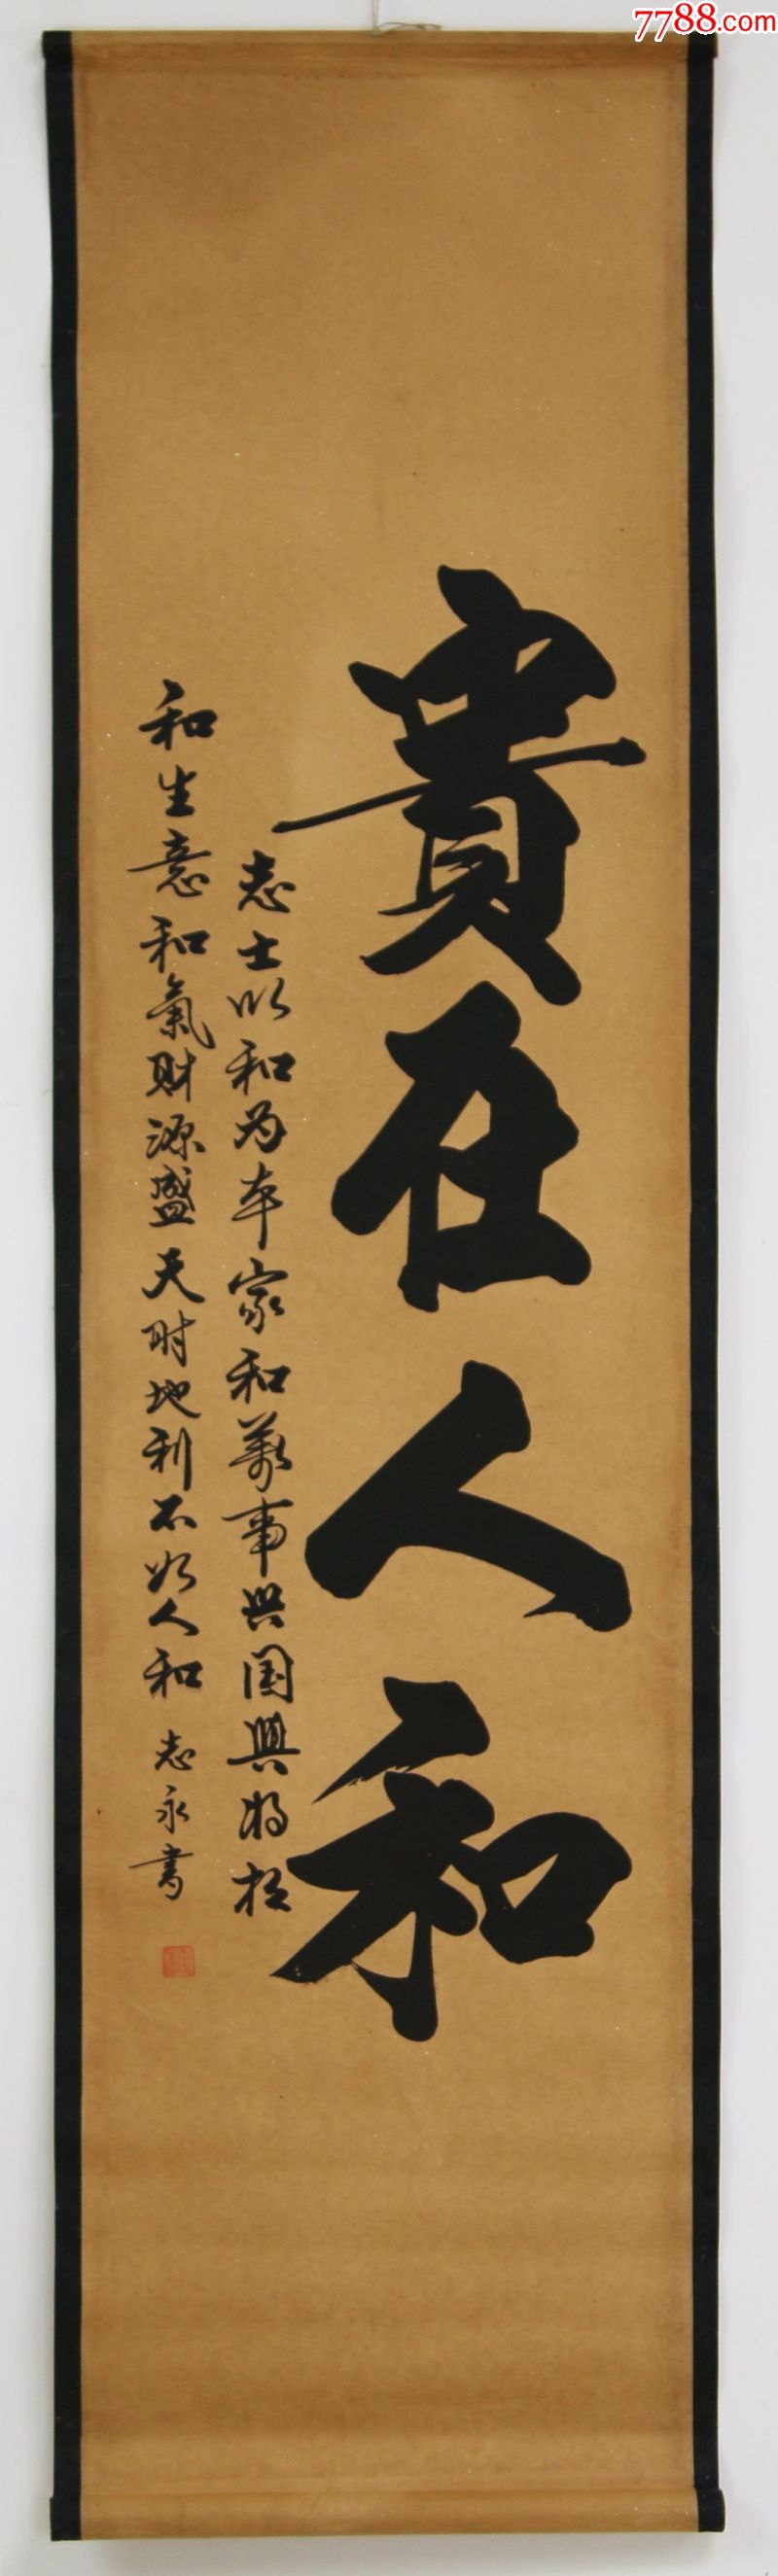 7788.com
貴在人和
志士以和为本家和萬事兴国興将相
和生意和氣财源盛天时地利不如人和 志永书